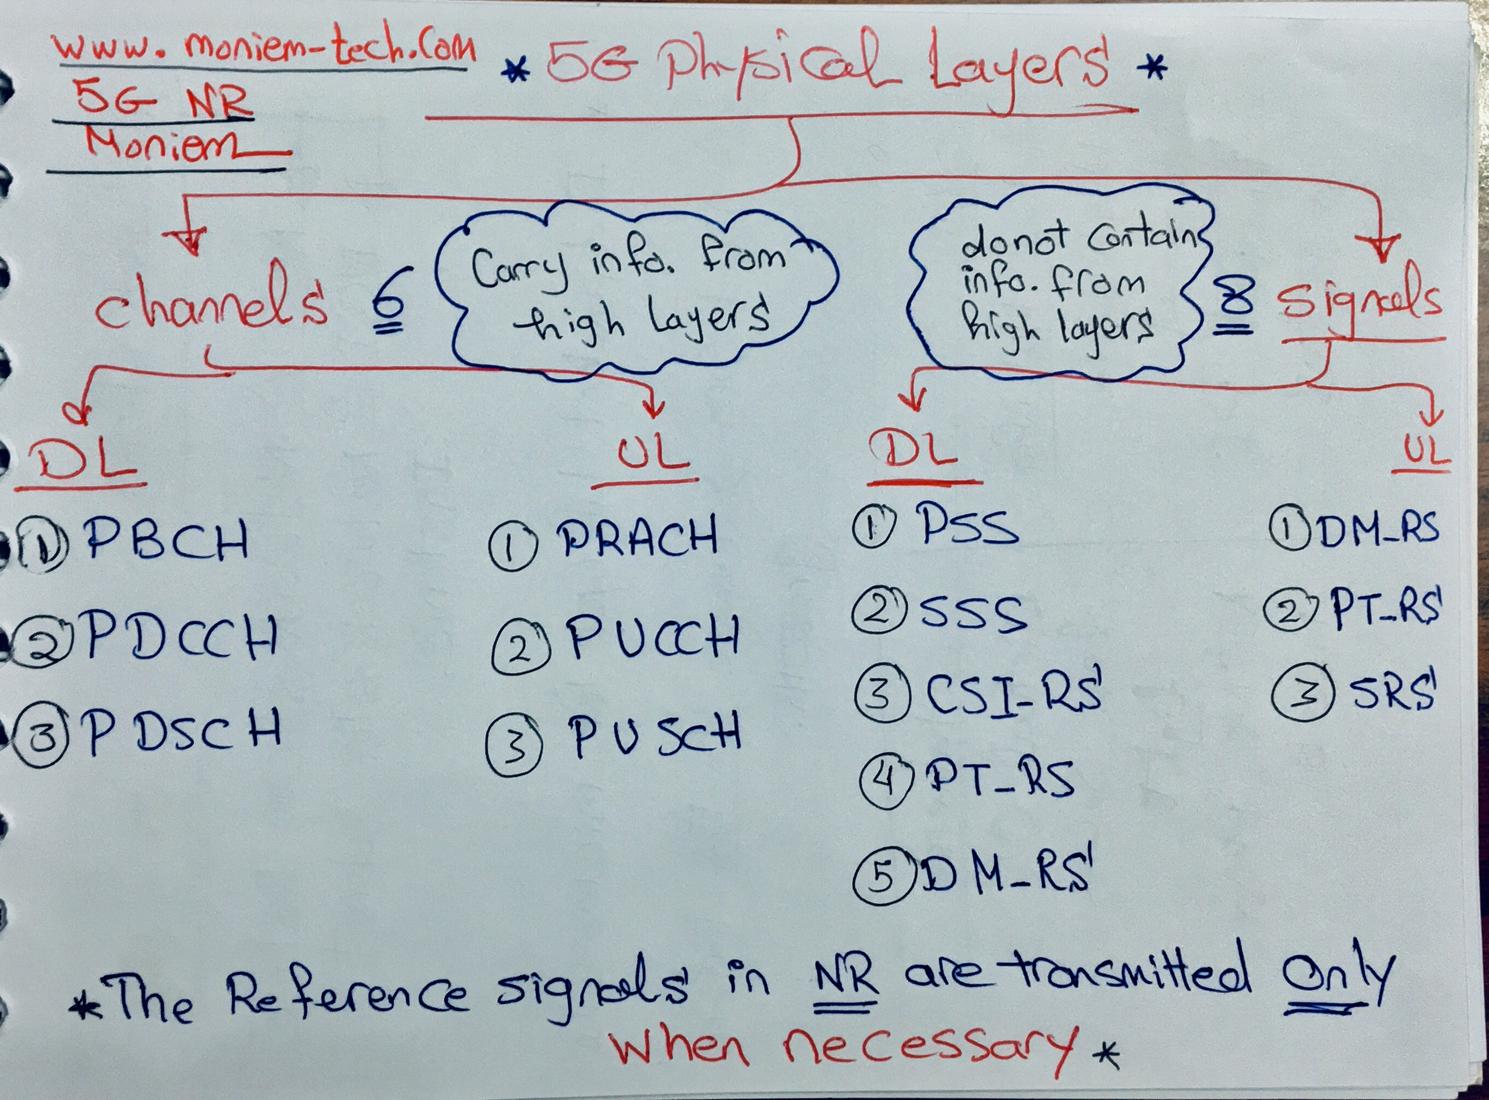 www.moniem-tech.com
5G NR
Moniem
* 5G Physical Layers *
channels 6
Carry info. from
high Layers
donot contain
info. from
high layers
8 signals
DL
① PBCH
② PDCCH
③ PDSCH
UL
① PRACH
② PUCCH
③ PUSCH
DL
① PSS
② SSS
③ CSI-RS
④ PT-RS
⑤ DM-RS
UL
① DM-RS
② PT-RS
③ SRS
* The Reference signals in NR are transmitted Only
when necessary *